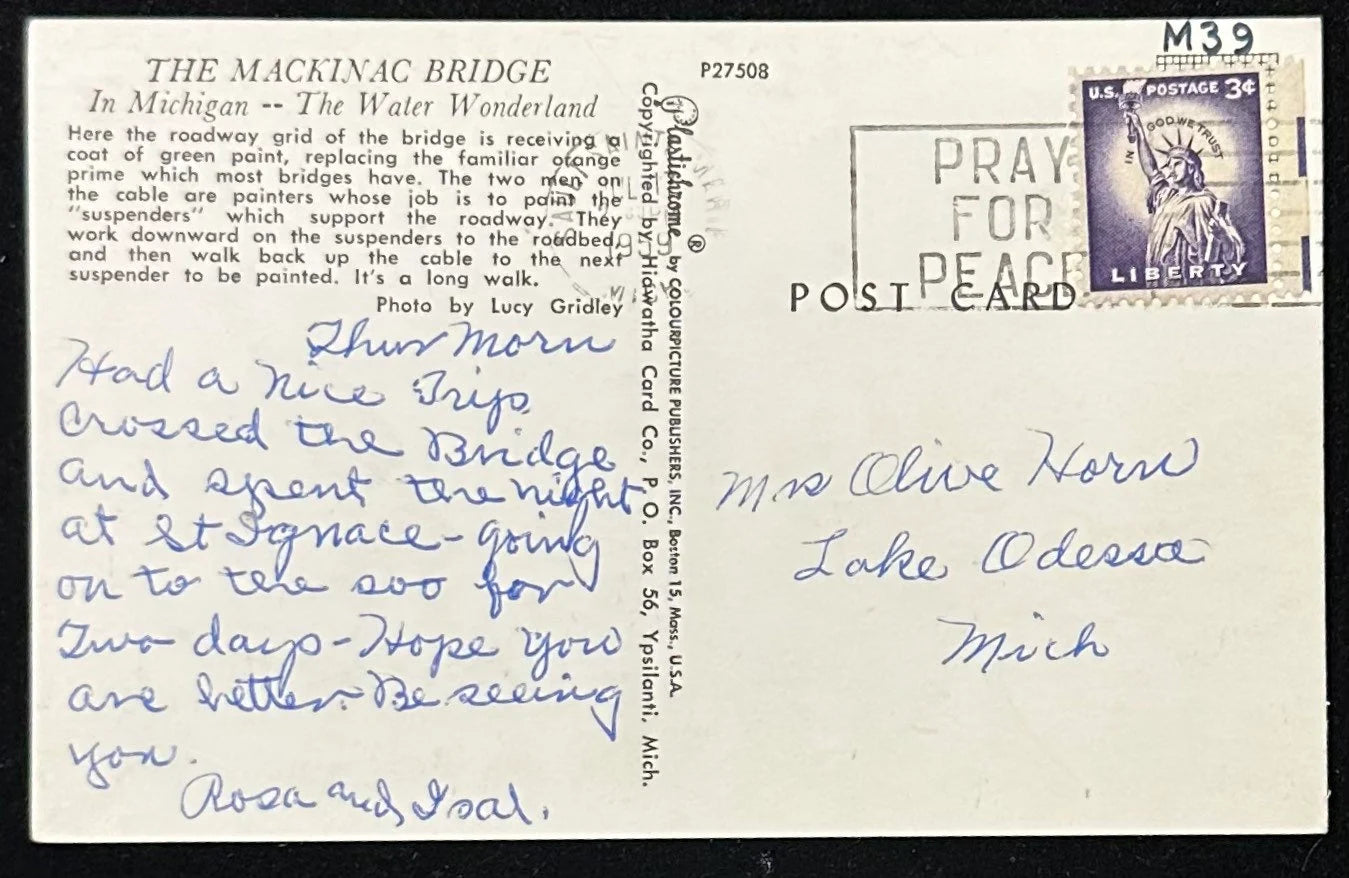 M39
THE MACKINAC BRIDGE
In Michigan -- The Water Wonderland
Here the roadway grid of the bridge is receiving a
coat of green paint, replacing the familiar orange
prime which most bridges have. The two men on
the cable are painters whose job is to paint the
"suspenders" which support the roadway. They
work downward on the suspenders to the roadbed,
and then walk back up the cable to the next
suspender to be painted. It's a long walk.
Photo by Lucy Gridley
Thur Morn
Had a nice Trip
Crossed the Bridge
and spent the night
at St Ignace - going
on to the soo for
Two days - Hope you
are better. Be seeing
you.
Rosa and Isal.
Plastichrome ® by COLOURPICTURE PUBLISHERS, INC., Boston 15, Mass., U.S.A.
Copyrighted by Hiawatha Card Co., P. O. Box 56, Ypsilanti, Mich.
P27508
PRAY
FOR
PEACE
POST CARD
U.S. POSTAGE 3¢
IN GOD WE TRUST
LIBERTY
Mrs Olive Horn
Lake Odessa
Mich